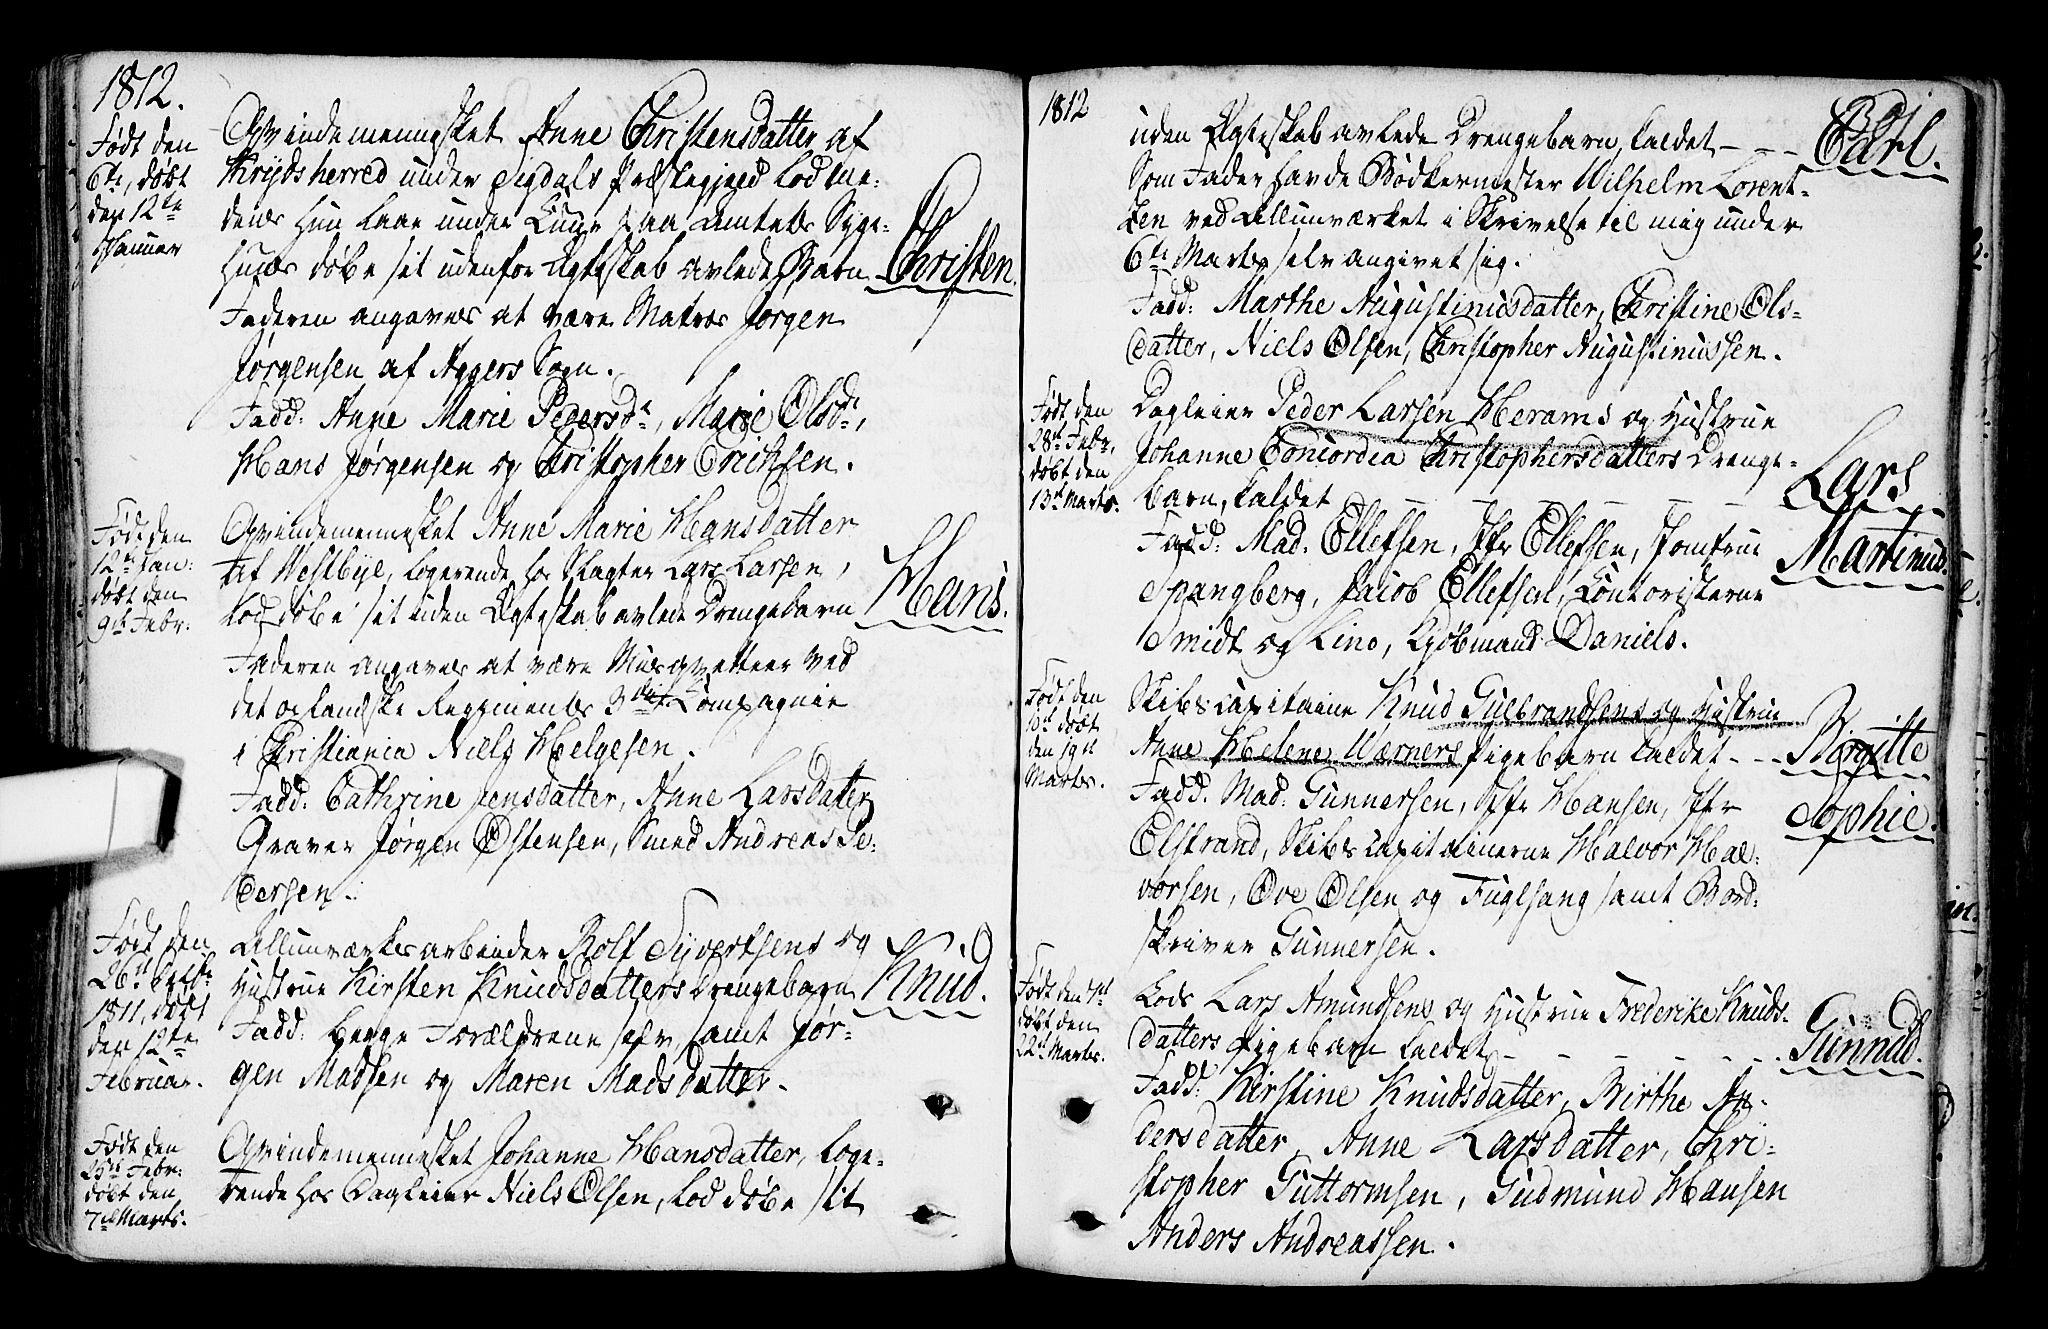 1812.
Født den
6te, døbt
den 12te
Januar
Qvindemennesket Anne Christensdatter af
Krydsherred under Sigdals Præstegjeld lod me-
dens hun laae under Cuur paa Amtets Syge-
huus døbe sit udenfor Ægteskab avlede Barn
Christen.
Faderen angaves at være Matros Jørgen
Jørgensen af Aggers Sogn.
Fadd: Anne Marie Pedersdr, Marie Olsdr,
Hans Jørgensen og Christopher Erichsen.
Født den
12te Jan:
døbt den
9de Febr:
Qvindemennesket Anne Marie Hansdatter
af Westbye, logerende hos Slagter Lars Larsen,
lod døbe sit uden Ægteskab avlede Drengebarn
Hans.
Faderen angaves at være Musqvetteer ved
det oplandske Regiments 3die Compagnie
i Christiania Niels Helgesen.
Fadd: Cathrine Jensdatter, Anne Larsdatter
Graver Jørgen Østensen, Smed Andreas Pe-
dersen.
Født den
26de Octbr
1811, døbt
den 12te
Februar.
Allunværksarbeider Rolf Syvertsens og
Hustrue Kirsten Knudsdatters Drengebarn
Knud.
Fadd: begge Forældrene selv, samt Jør-
gen Madsen og Maren Madsdatter.
Født den
Febr:
døbt den
7de Marts.
Qvindemennesket Johanne Hansdatter, loge-
rende hos Dagleier Niels Olsen, lod døbe sit
1812
uden Ægteskab avlede Drengebarn, kaldet - - -
Carl.
Som Fader havde Bødkermester Wilhelm Lorent-
zen ved Allunværket i Skrivelse til mig under
6te Marts selv angivet sig.
Fadd: Marthe Augustinusdatter, Christine Ols-
datter, Niels Olsen, Christopher Augustinussen.
Født den
28de Febr,
døbt den
13de Marts.
Dagleier Peder Larsen Herams og Hustrue
Johanne Concordia Christophersdatters Drenge-
barn, kaldet - - - - -
Lars
Martinus.
Fadd: Mad. Ellefsen, Jfr Ellefsen, Jomfrue
Spangberg, Jacob Ellefsen, Contoristerne
Smidt og Lind, Kjøbmand Daniels.
Født den
10de døbt
den 19de
Marts.
Skibscapitaine Knud Gulbrandsens og Hustrue
Anne Helene Wærners Pigebarn kaldet - - -
Birgitte
Sophie.
Fadd. Mad: Gunnersen, Jfr Hansen, Jfr
Elstrand, Skibscapitainerne Halvor Hal-
vorsen, Ove Olsen og Fuglsang samt Bord-
skriver Gunnersen.
Født den
døbt den
22de Marts.
Lods Lars Amundsens og Hustrue Frederike Knuds-
datters Pigebarn kaldet - - - - - -
Gunnild.
Fadd: Kirstine Knudsdatter, Birthe An-
dersdatter, Anne Larsdatter, Chri-
stopher Guttormsen, Gudmund Hansen
Anders Andreassen.